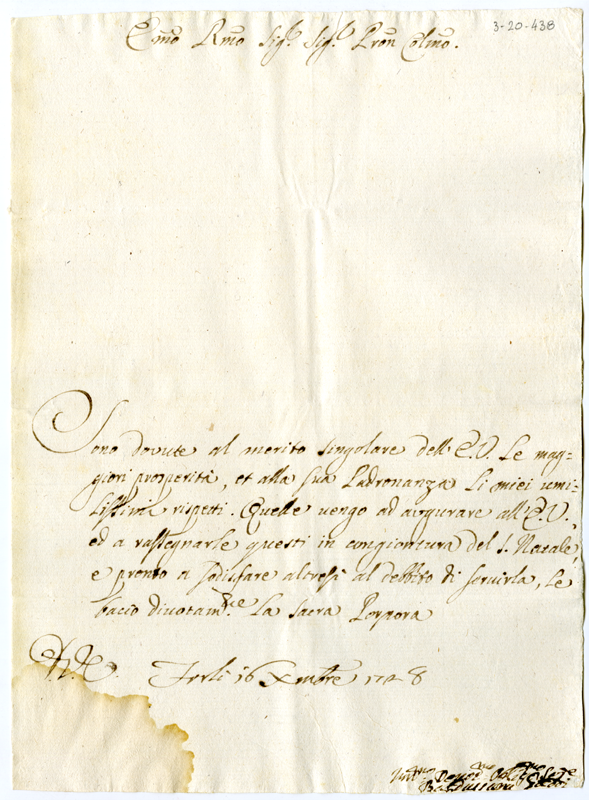 3-20-438
Emo Rmo Sigr. Sigr. Pron Colmo.
Sono dovute al merito singolare dell'E.V. Le mag=
giori prosperità, et alla sua Padronanza Li miei umi=
lissimi rispetti. Quelle vengo ad augurare all'E.V.,
ed a rassegnarle questi in congiontura del S. Natale,
e pronto a sodisfare altresì al debbito di servirla, Le
bacio divotamte. La Sacra Porpora
Forlì 16 Xmbre 1728